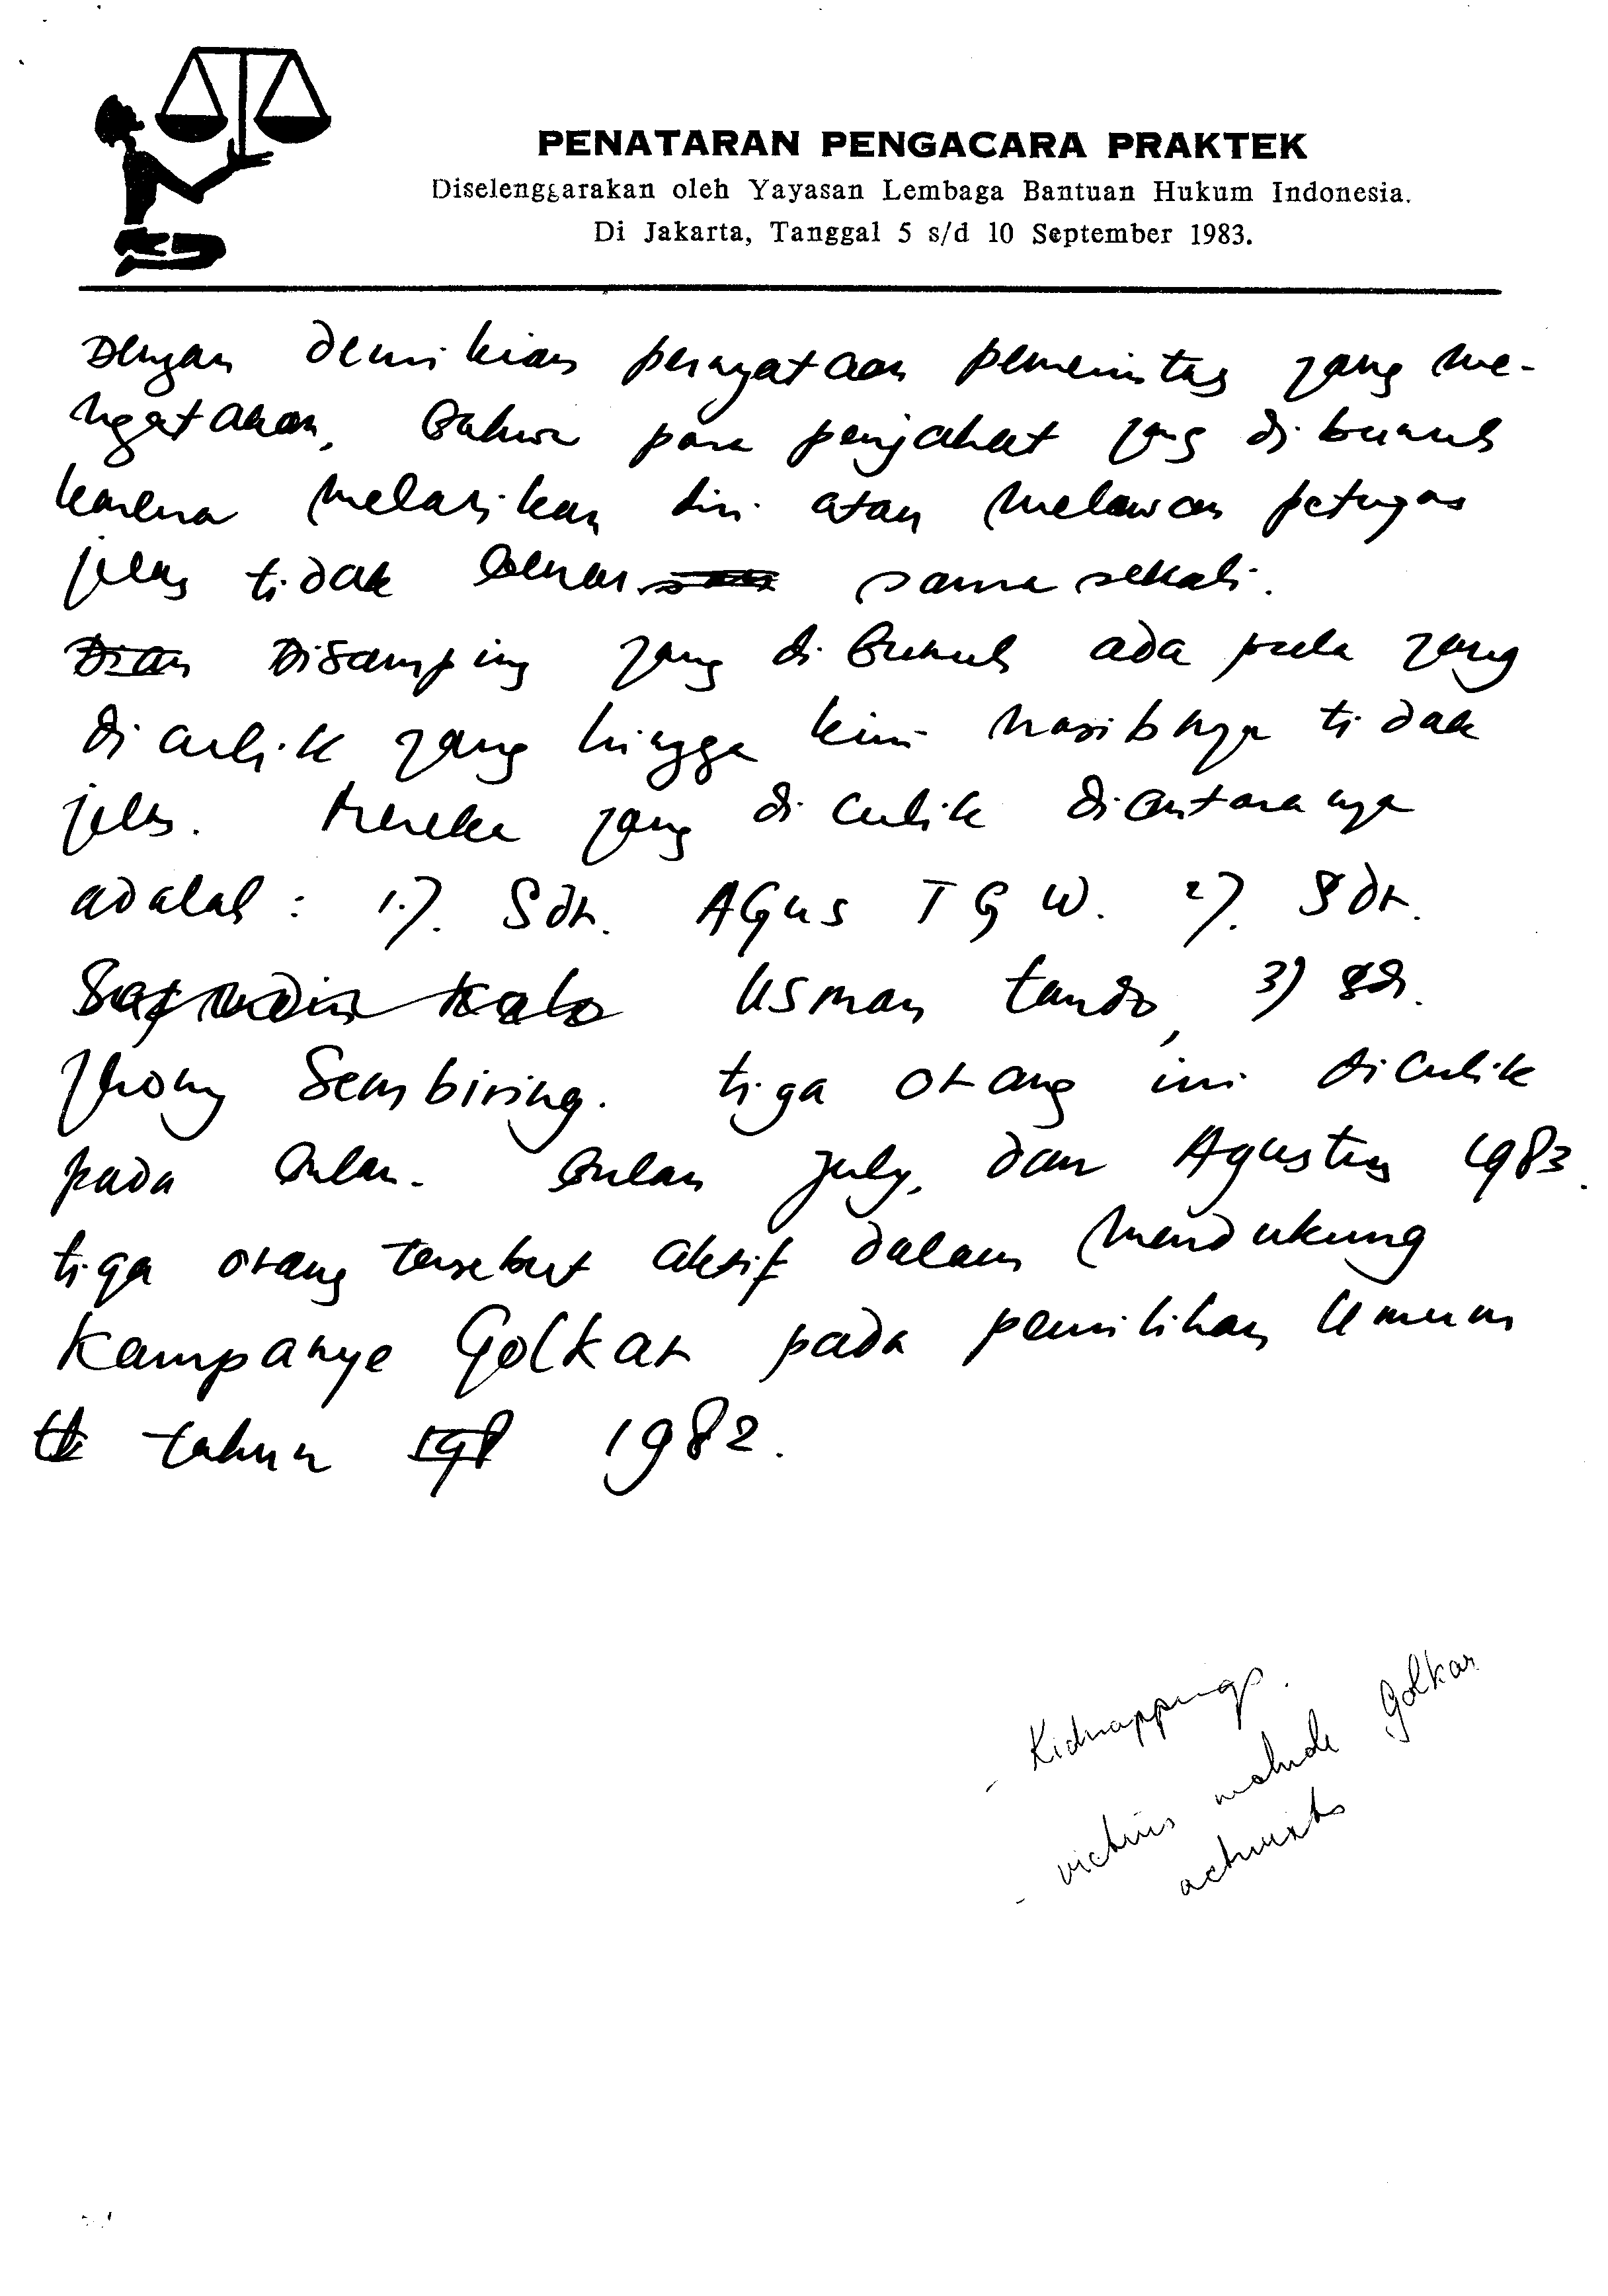 PENATARAN PENGACARA PRAKTEK
Diselenggarakan oleh Yayasan Lembaga Bantuan Hukum Indonesia.
Di Jakarta, Tanggal 5 s/d 10 September 1983.
Dengan demikian pernyataan pemerintah yang me-
ngatakan, bahwa para penjahat yang dibunuh
karena melarikan diri atau melawan petugas
jelas tidak benar sama sekali.
Disamping yang dibunuh ada pula yang
diculik yang hingga kini nasibnya tidak
jelas. Mereka yang diculik diantaranya
adalah : 1.). Sdr. Agus T G W. 2). Sdr.
Usman tando, 3) Sdr.
Jhony Sembiring. tiga orang ini diculik
pada bulan- bulan July, dan Agustus 1983.
tiga orang tersebut aktif dalam mendukung
Kampanye Golkar pada pemilihan Umum
tahun 1982.
- Kidnappings.
- victims include Golkar
activists